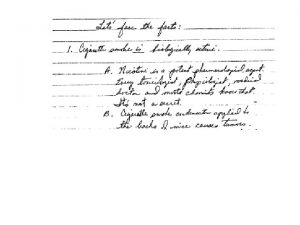 Let's face the facts:
1. Cigarette smoke is biologically active.
A. Nicotine is a potent pharmacological agent.
Every toxicologist, physiologist, medical
doctor and most chemists know that.
It's not a secret.
B. Cigarette smoke condensate applied to
the backs of mice causes tumors.